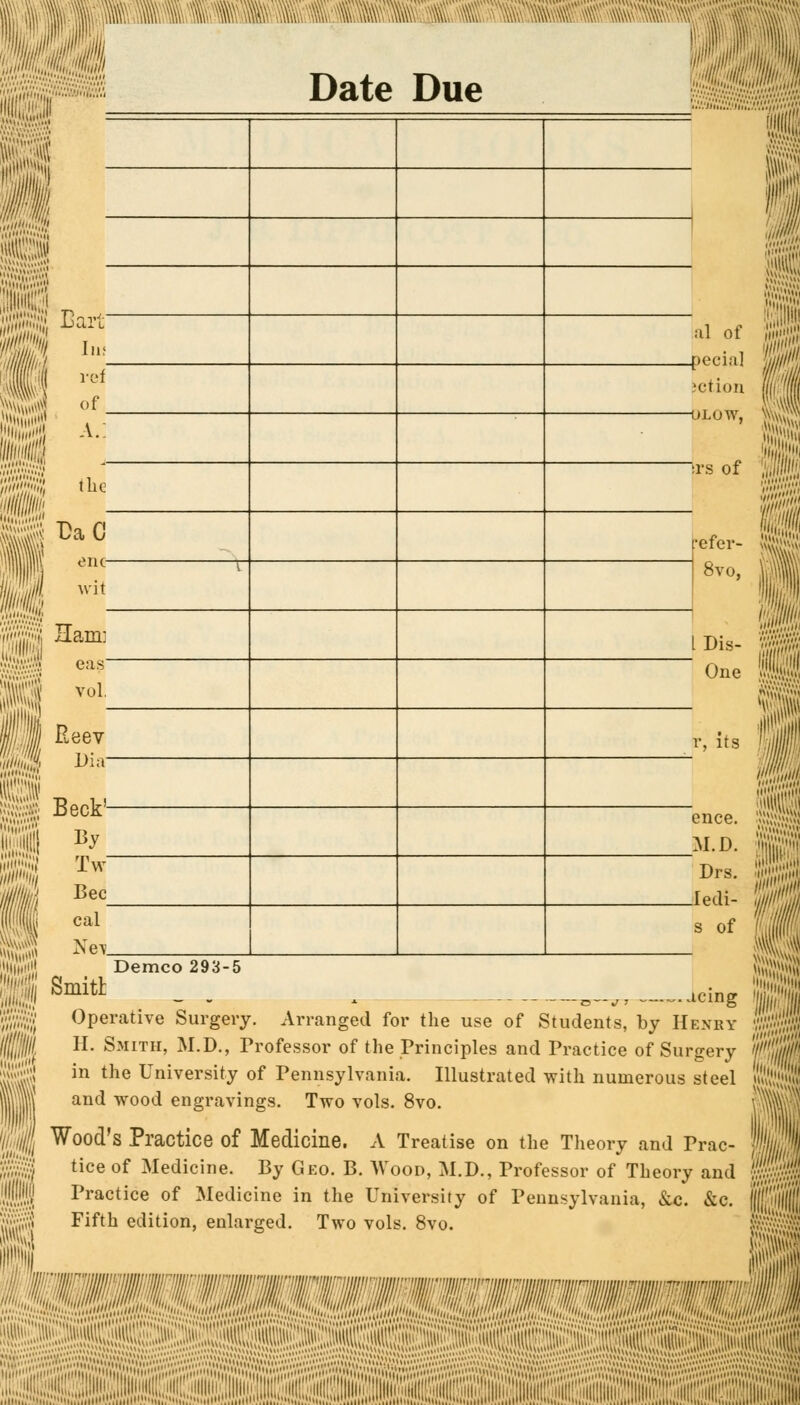 Date Due
Bart
al of
pecial
ref
ction
of
LOW,
A.
rs of
the
Da C
refer-
enc
8vo,
wit
Ham
l Dis-
eas
One
vol.
Reev
r, its
Dia
Beck'
ence.
By
M.D.
Tw
Drs.
Bec
Iedi-
cal
s of
Nev
Demco 293-5
Smith
acing
Operative Surgery. Arranged for the use of Students, by Henry
H. Smith, M.D., Professor of the Principles and Practice of Surgery
in the University of Pennsylvania. Illustrated with numerous steel
and wood engravings. Two vols. 8vo.
Wood's Practice of Medicine. A Treatise on the Theory and Prac-
tice of Medicine. By Geo. B. Wood, M.D., Professor of Theory and
Practice of Medicine in the University of Pennsylvania, &c. &c.
Fifth edition, enlarged. Two vols. 8vo.